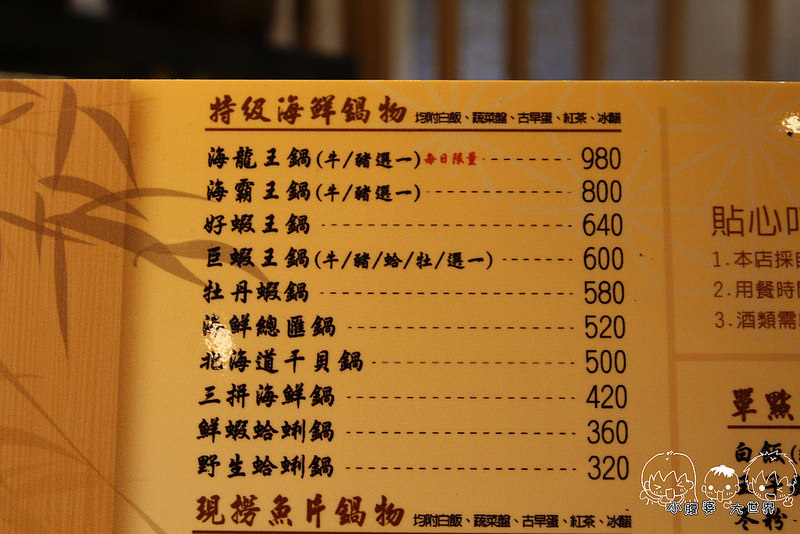 特级海鮮鍋物 均附白飯、蔬菜盤、古早蛋、紅茶、冰醋
海龍王鍋(牛/豬選一)每日限量 980
海霸王鍋(牛/豬選一) 800
好蝦王鍋 640
巨蝦王鍋(牛/豬/蛤/牡/選一) 600
牡丹蝦鍋 580
海鮮總匯鍋 520
北海道干貝鍋 500
三拼海鮮鍋 420
鮮蝦蛤蜊鍋 360
野生蛤蜊鍋 320
現撈魚片鍋物 均附白飯、蔬菜盤、古早蛋、紅茶、冰醋
貼心
1.本店採
2.用餐時間
3.酒類需
單點
白飯(
冬粉
小腹婆 大世界